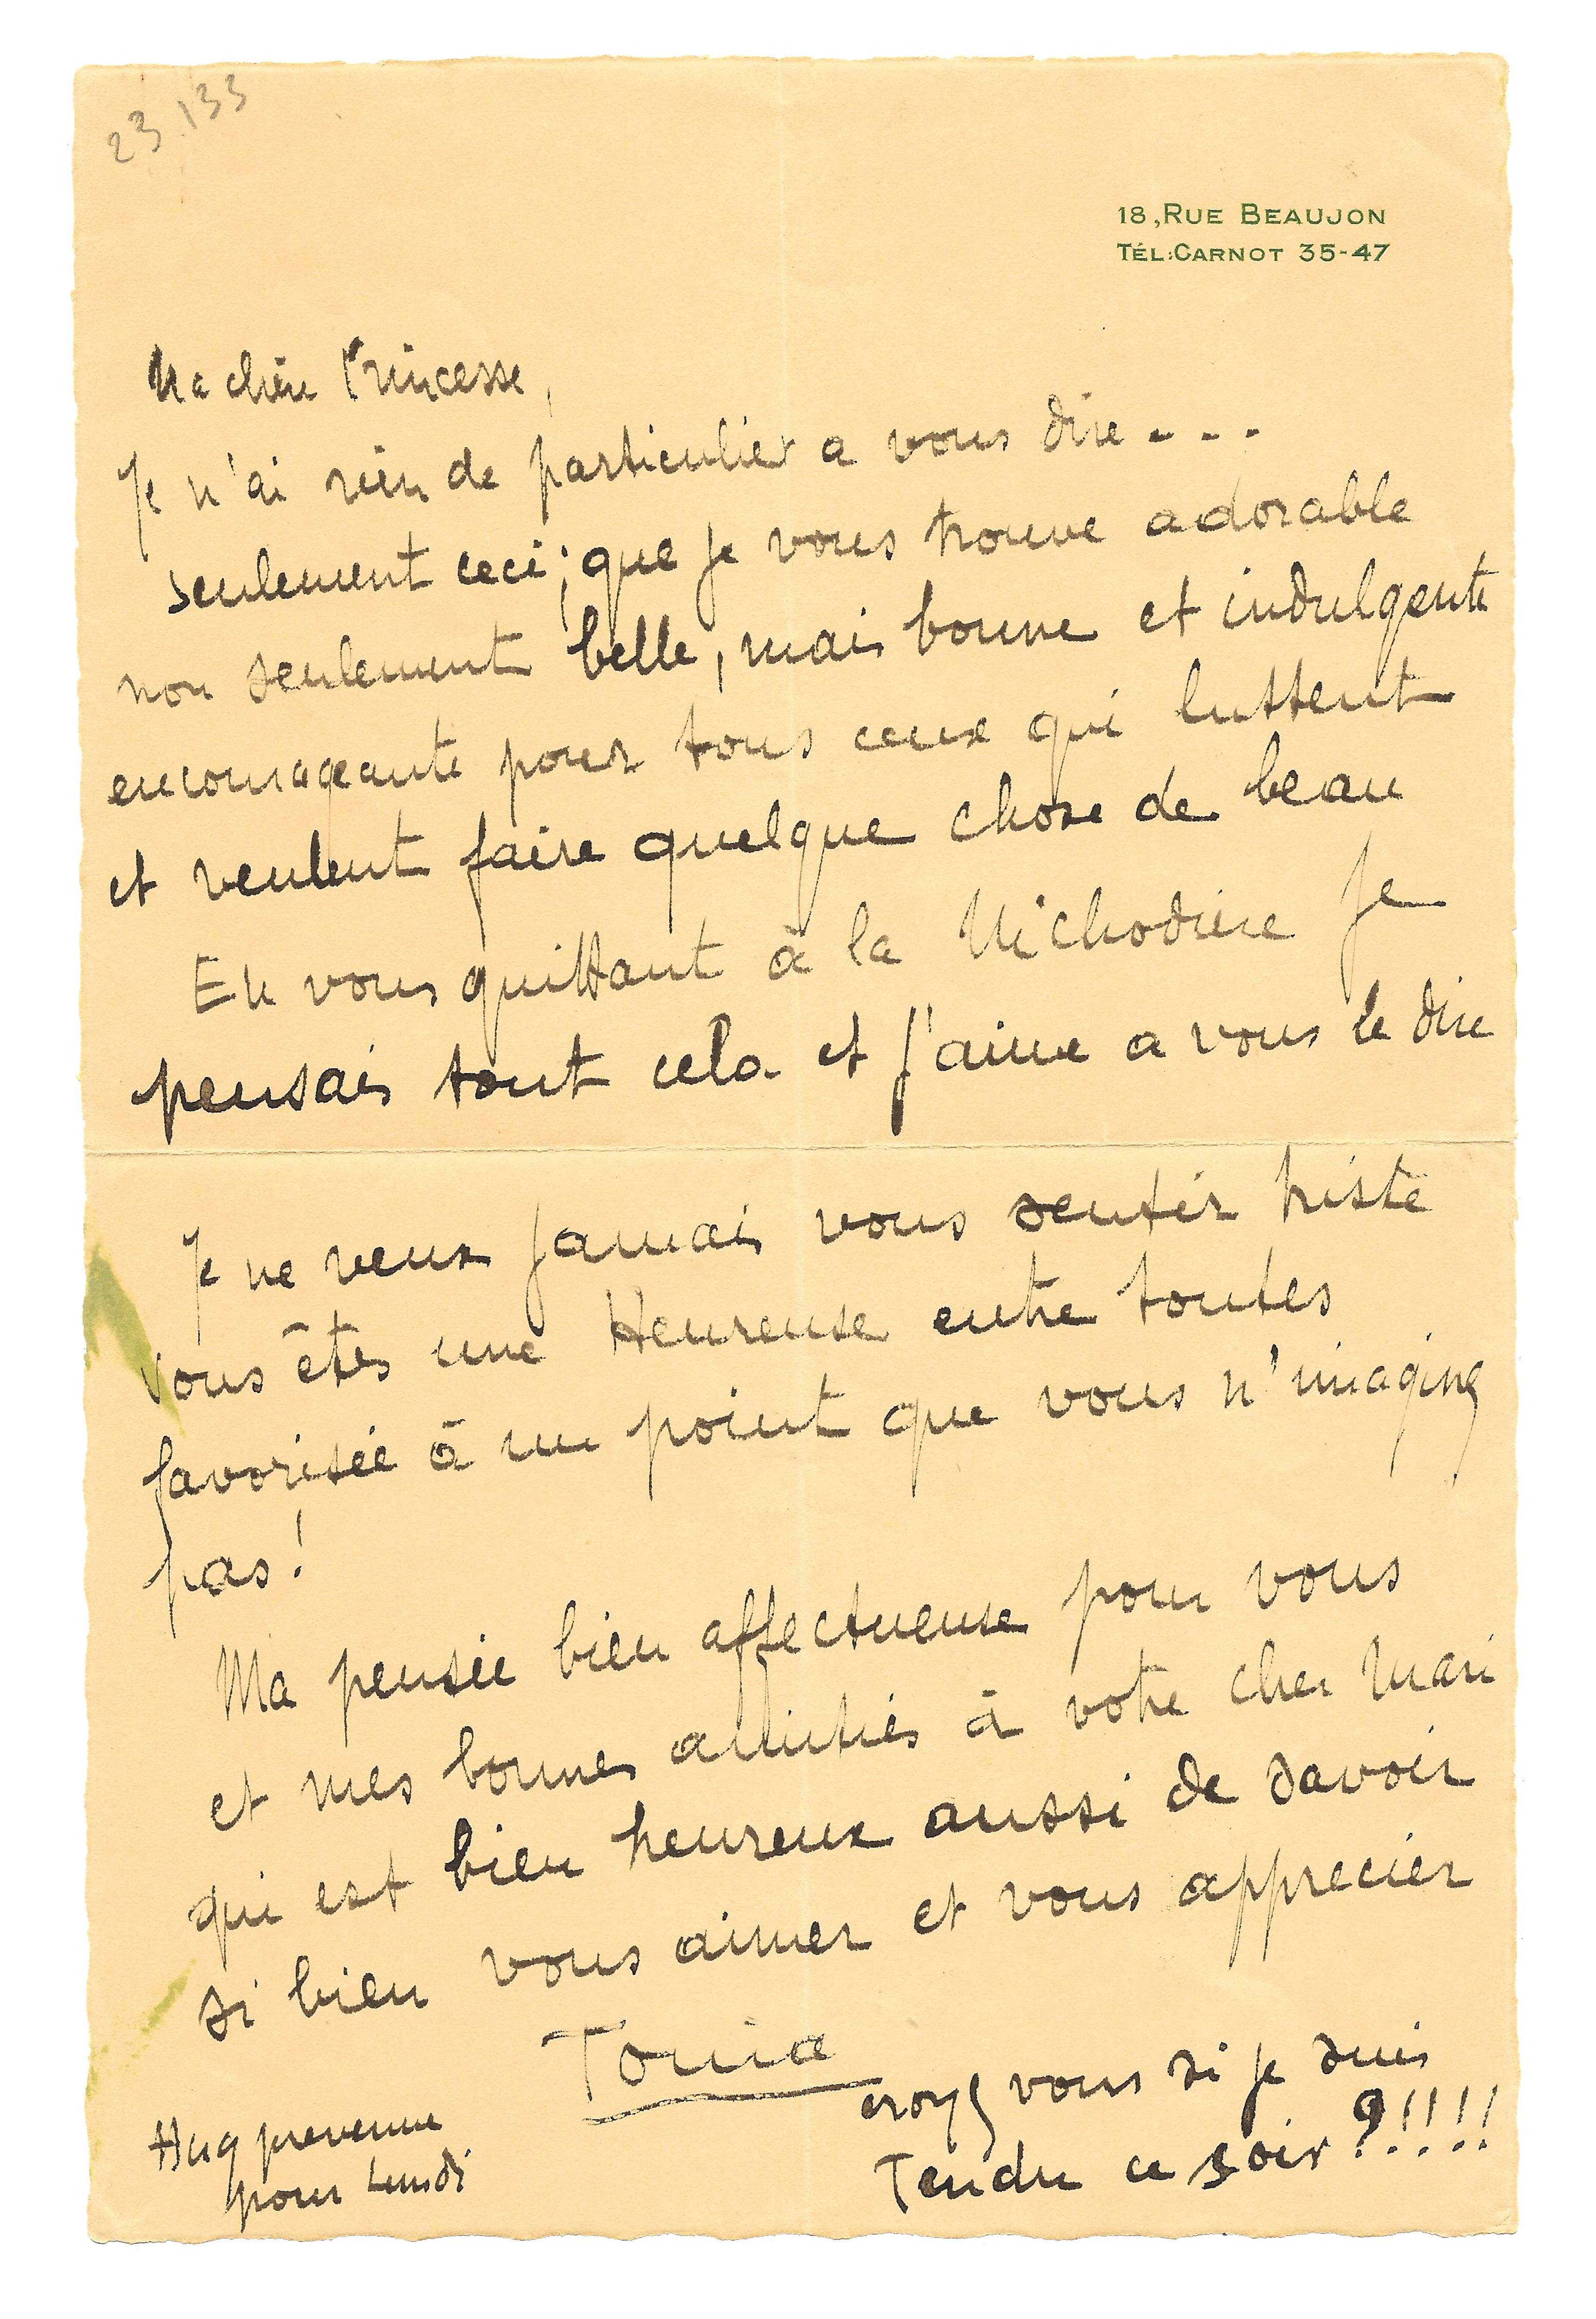 23.133
18, RUE BEAUJON
TÉL: CARNOT 35-47
Ma chère Princesse,
Je n'ai rien de particulier a vous dire - - -
seulement ceci; que je vous trouve adorable
non seulement belle, mais bonne et indulgente
encourageante pour tous ceux qui luttent
et veulent faire quelque chose de beau
En vous quittant à la Michodière je
pensais tout cela et j'aime a vous le dire
Je ne veux jamais vous sentir triste
vous êtes une Heureuse entre toutes
favorisée à un point que vous n'imaginez
pas!
Ma pensée bien affectueuse pour vous
et mes bonnes amitiés à votre cher Mari
qui est bien heureux aussi de savoir
si bien vous aimer et vous apprecier
Tonia
croyez vous si je suis
Tendre ce soir ?!!!!
prevenue
pour Lundi